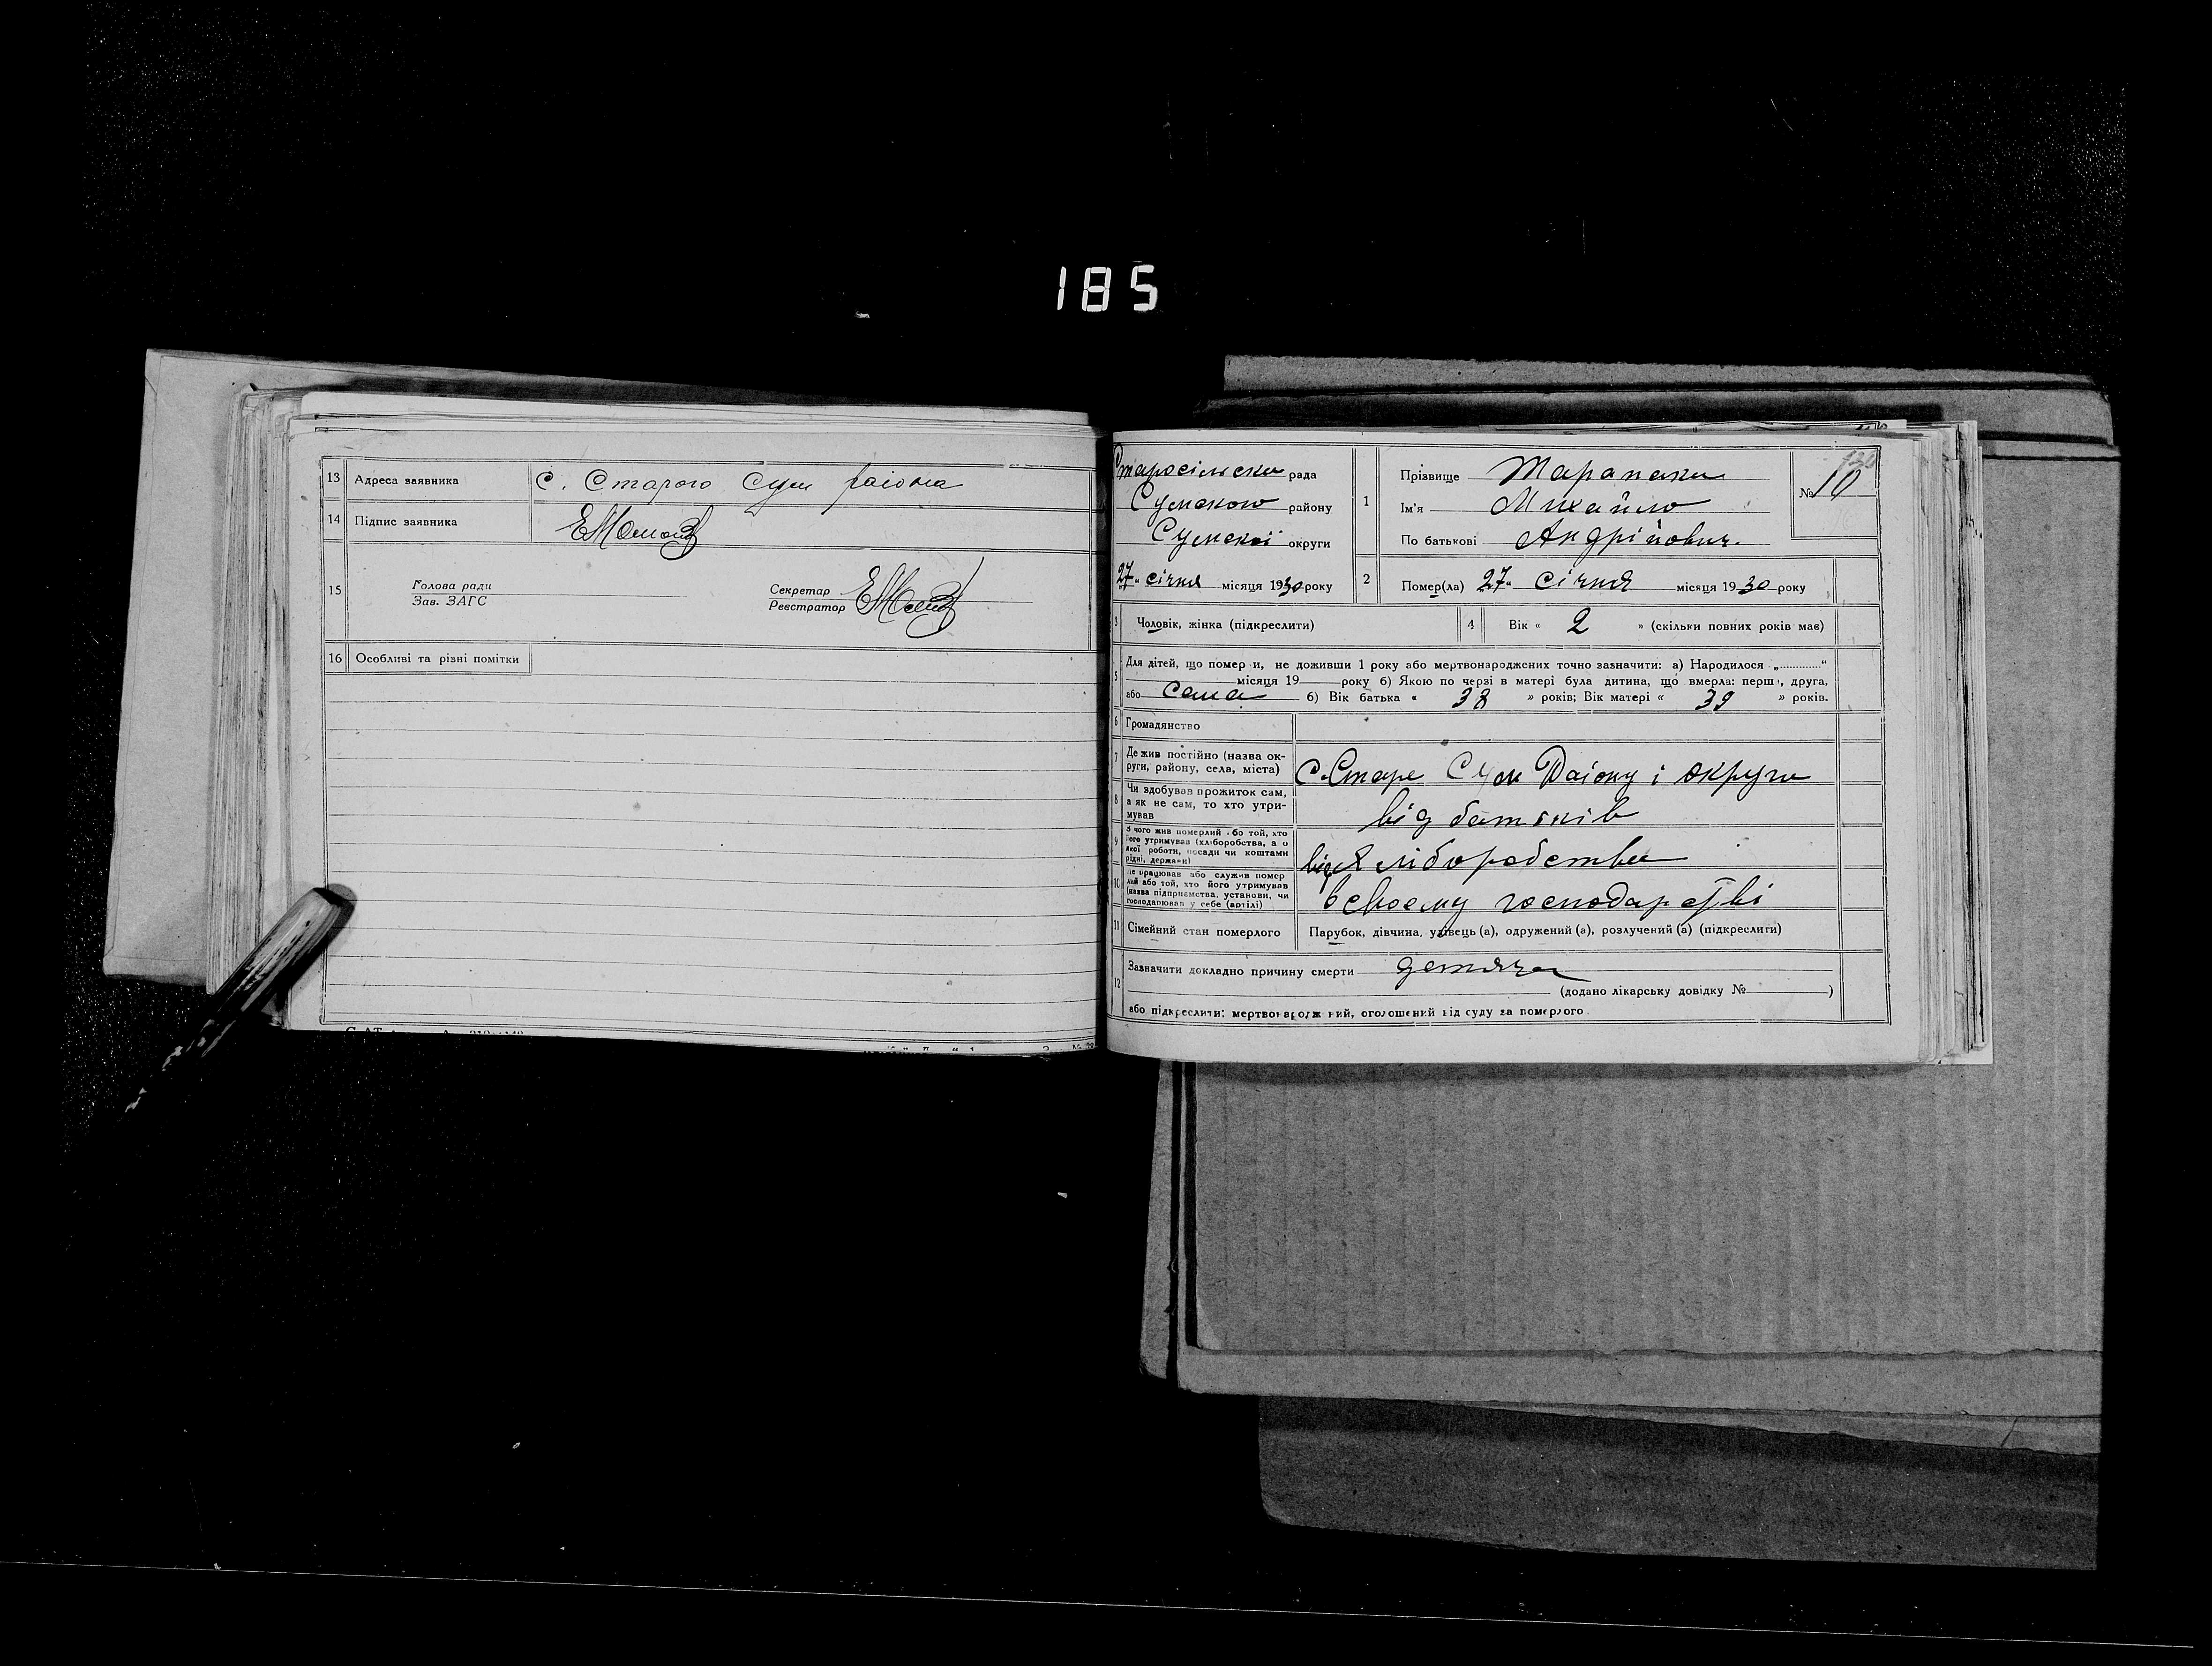 185
13 Адреса заявника с. Старого Сум раіона
14 Підпис заявника
15 Голова ради
Зав. ЗАГС
Секретар
Реєстратор
16 Особливі та різні помітки
Старосільська рада
Сумского району
Сумскої округи
27 " січня місяця 1930 року
1 Прізвище Тарапака
Ім'я Михайло
По батькові Андрійович.
№ 10
2 Помер(ла) 27 " січня місяця 1930 року
3 Чоловік, жінка (підкреслити)
4 Вік « 2 » (скільки повних років має)
5 Для дітей, що померли, не доживши 1 року або мертвонароджених точно зазначити: а) Народилося „ “
місяця 19 року б) Якою по черзі в матері була дитина, що вмерла: перша, друга,
або сема б) Вік батька « 38 » років; Вік матері « 39 » років.
6 Громадянство
7 Де жив постійно (назва округи, району, села, міста) с. Старе Сум Раіону і округи
8 Чи здобував прожиток сам, а як не сам, то хто утримував
від батьків
9 З чого жив померлий або той, хто його утримував (хліборобства, а о якої роботи, посади чи коштами рідні, держави)
від хліборобства
10 Де працював або служив померлий або той, хто його утримував (назва підприємства, установи, чи господарював у себе (артілі)
в своему господарстві
11 Сімейний стан померлого Парубок, дівчина, удівець (а), одружений (а), розлучений (а) (підкреслити)
12 Зазначити докладно причину смерти детяча
(додано лікарську довідку № )
або підкреслити: мертвонароджений, оголошений від суду за померлого.